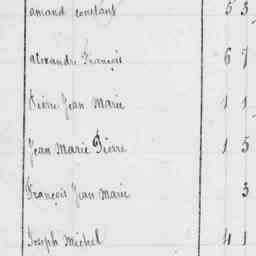 amand constant 5 3
alexandre François 6 7
Pierre Jean Marie 1 1
Jean Marie Pierre 1 5
François Jean Marie 3
Joseph Michel 4 1